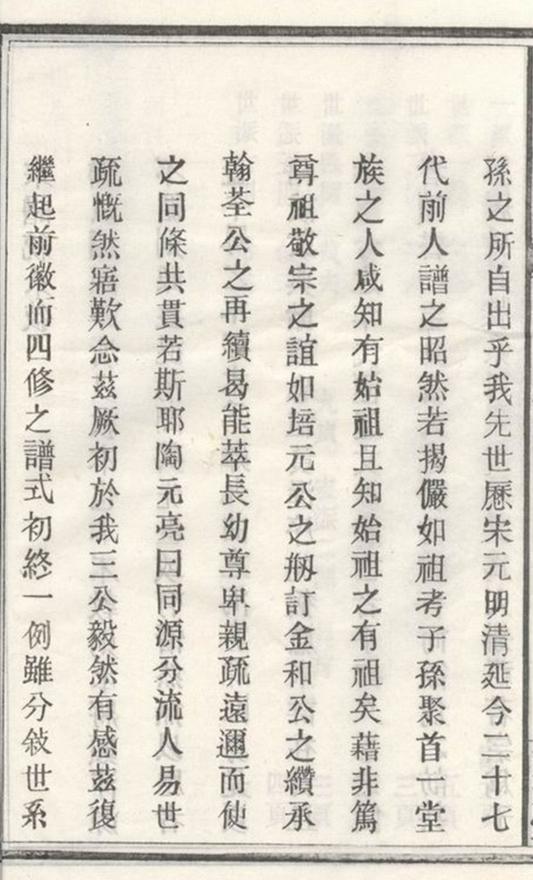 孫之所自出乎我先世歷宋元明清延今二十七
代前人譜之昭然若揭儼如祖考子孫聚首一堂
族之人咸知有始祖且知始祖之有祖矣藉非篤
尊祖敬宗之誼如培元公之剏訂金和公之纘承
翰荃公之再續曷能萃長幼尊卑親疏遠邇而使
之同條共貫若斯耶陶元亮曰同源分流人易世
疏慨然寤歎念茲厥初於我三公毅然有感茲復
繼起前徽而四修之譜式初終一例雖分敍世系